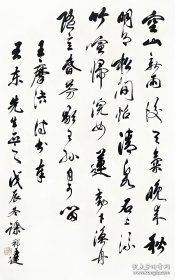 空山新雨後天氣晚來秋
明月松間照清泉石上流
竹喧歸浣女蓮動下漁舟
隨意春芳歇王孫自可留
王摩詰詩奉
東先生正之戊辰冬